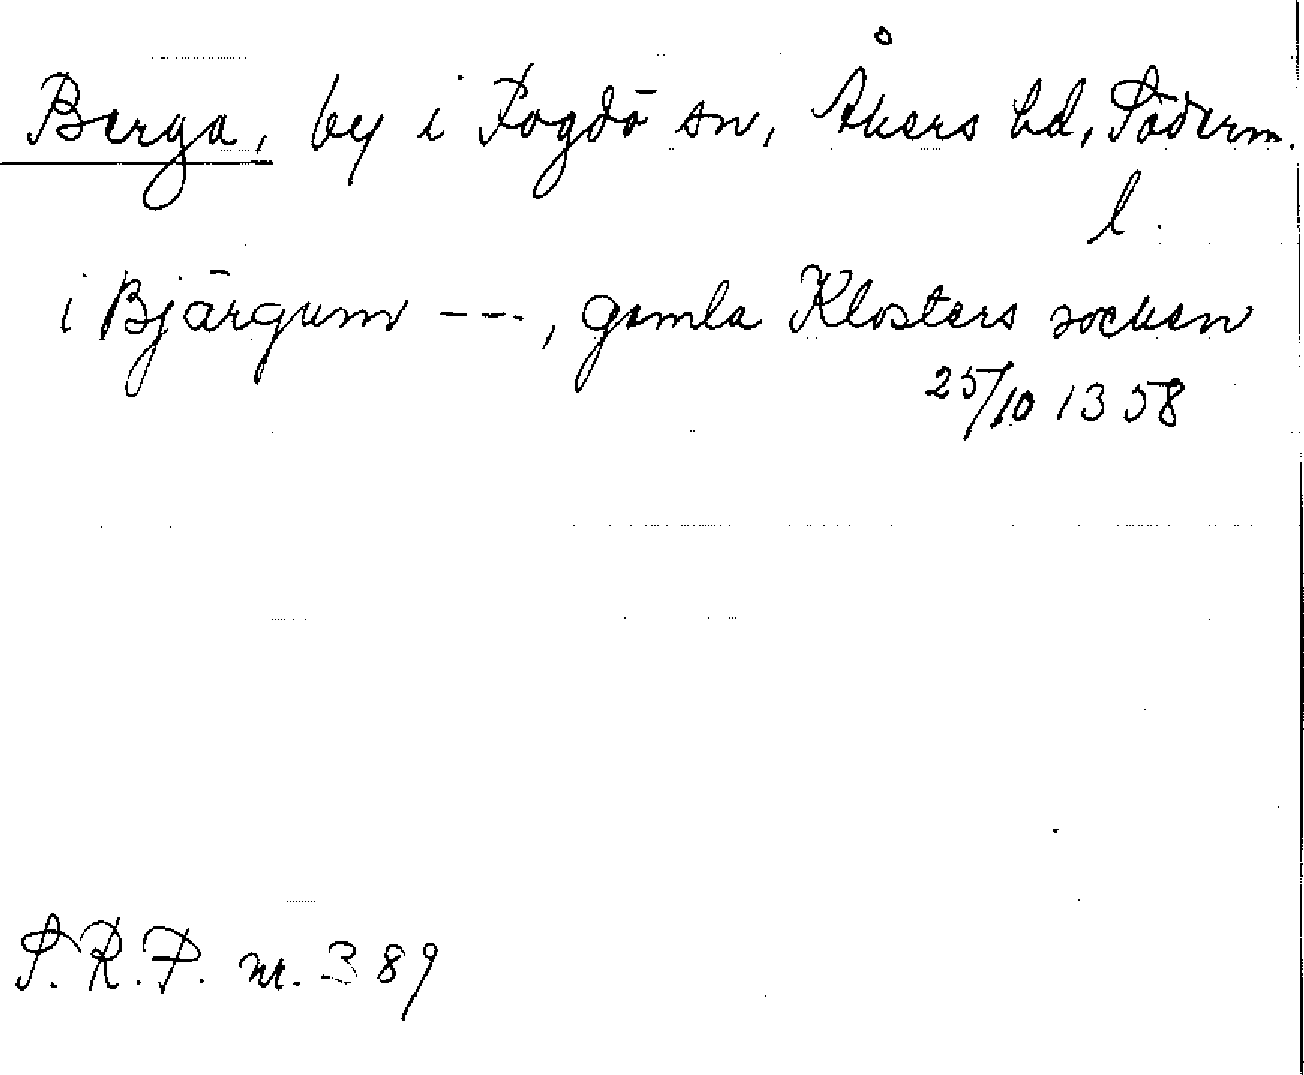 Berga, by i Fogdö sn, Åkers hd, Söderm.
l.
i Bjärgum ---, gamla Klosters socken
25/10 1358
S.R.P. nr. 389